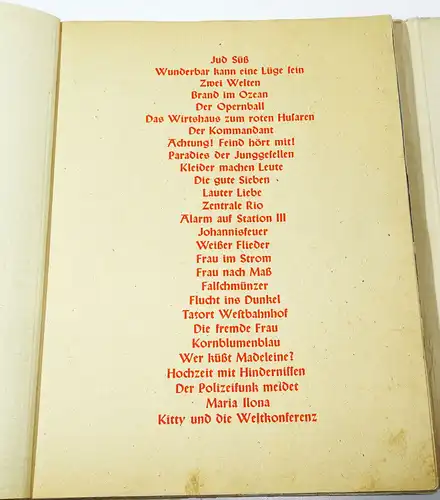 Jud Süß
Wunderbar kann eine Lüge sein
Zwei Welten
Brand im Ozean
Der Opernball
Das Wirtshaus zum roten Husaren
Der Kommandant
Achtung! Feind hört mit!
Paradies der Junggesellen
Kleider machen Leute
Die gute Sieben
Lauter Liebe
Zentrale Rio
Alarm auf Station III
Johannisfeuer
Weißer Flieder
Frau im Strom
Frau nach Maß
Falschmünzer
Flucht ins Dunkel
Tatort Westbahnhof
Die fremde Frau
Kornblumenblau
Wer küßt Madeleine?
Hochzeit mit Hindernissen
Der Polizeifunk meldet
Maria Ilona
Kitty und die Weltkonferenz